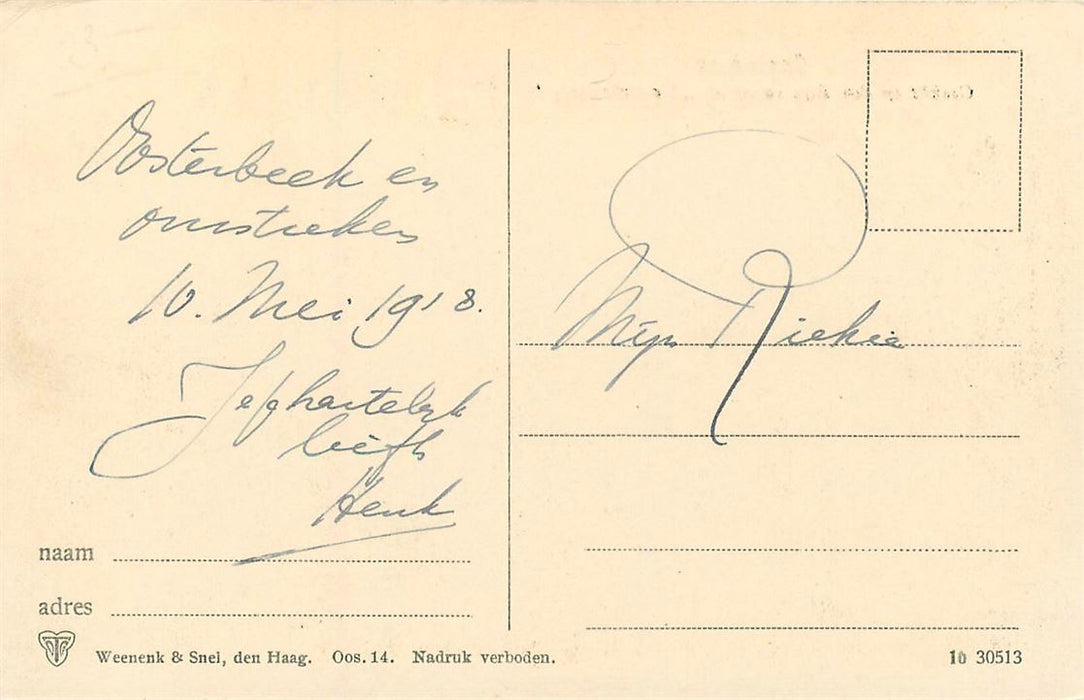 Oosterbeek en
omstreken
10. Mei 1918.
hartelijk
liefh
Henk
Mijn Riekie
naam
adres
Weenenk & Snel, den Haag. Oos. 14. Nadruk verboden.
10 30513